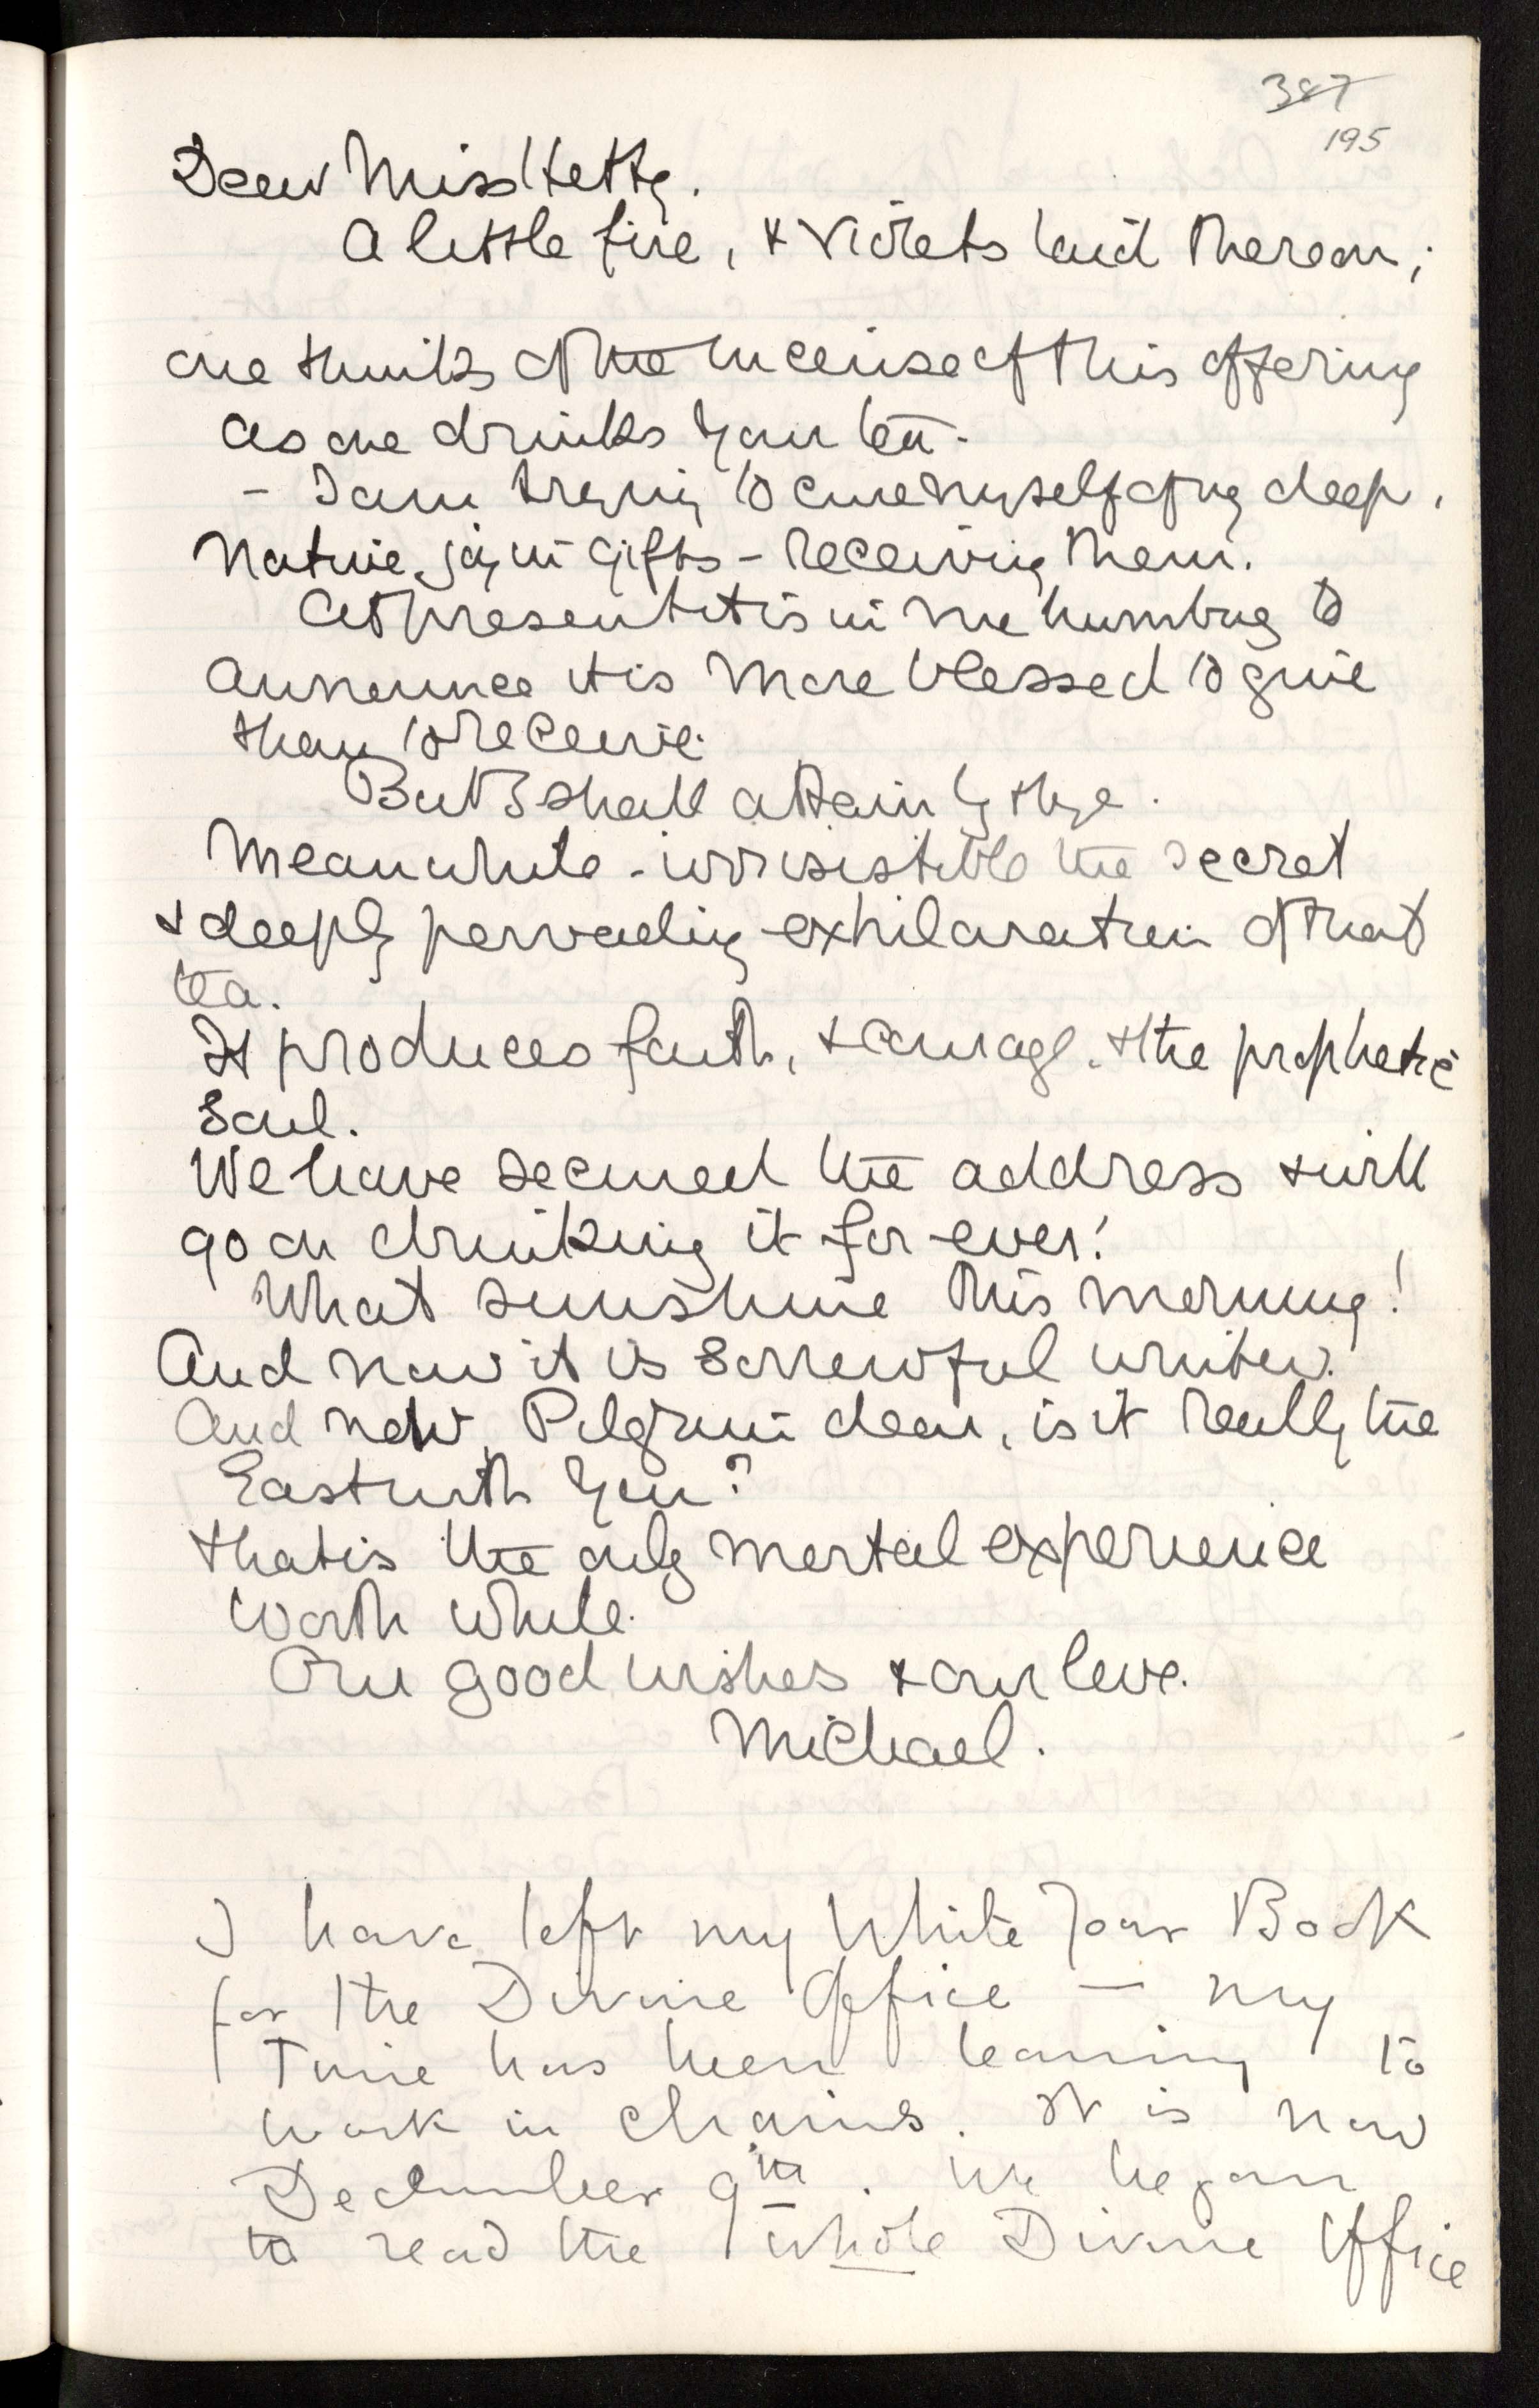 387
195
Dear Miss Hetty.
A little fire, & violets laid thereon;
one thinks of the incense of this offering
as one drinks your tea.
- I am trying to cure myself of my deep,
native joy in gifts - receiving them.
At present it is in me humbug to
announce it is more blessed to give
than to receive.
But I shall attain by
Meanwhile - irrisistible the secret
& deeply pervading exhilaration of that
tea.
It produces faith, & courage, & the prophetic
soul.
We have secured the address & will
go on drinking it for ever!
What sunshine this morning!
And now it is sorrowful winter.
And now, Pilgrim dear, is it really the
East with you?
That is the only mortal experience
worth while.
Our good wishes & our love.
Michael.
I have left my White Year Book
for the Divine Office — my
Time has been learning to
work in chains. It is now
December 9th. We began
to read the whole Divine Office